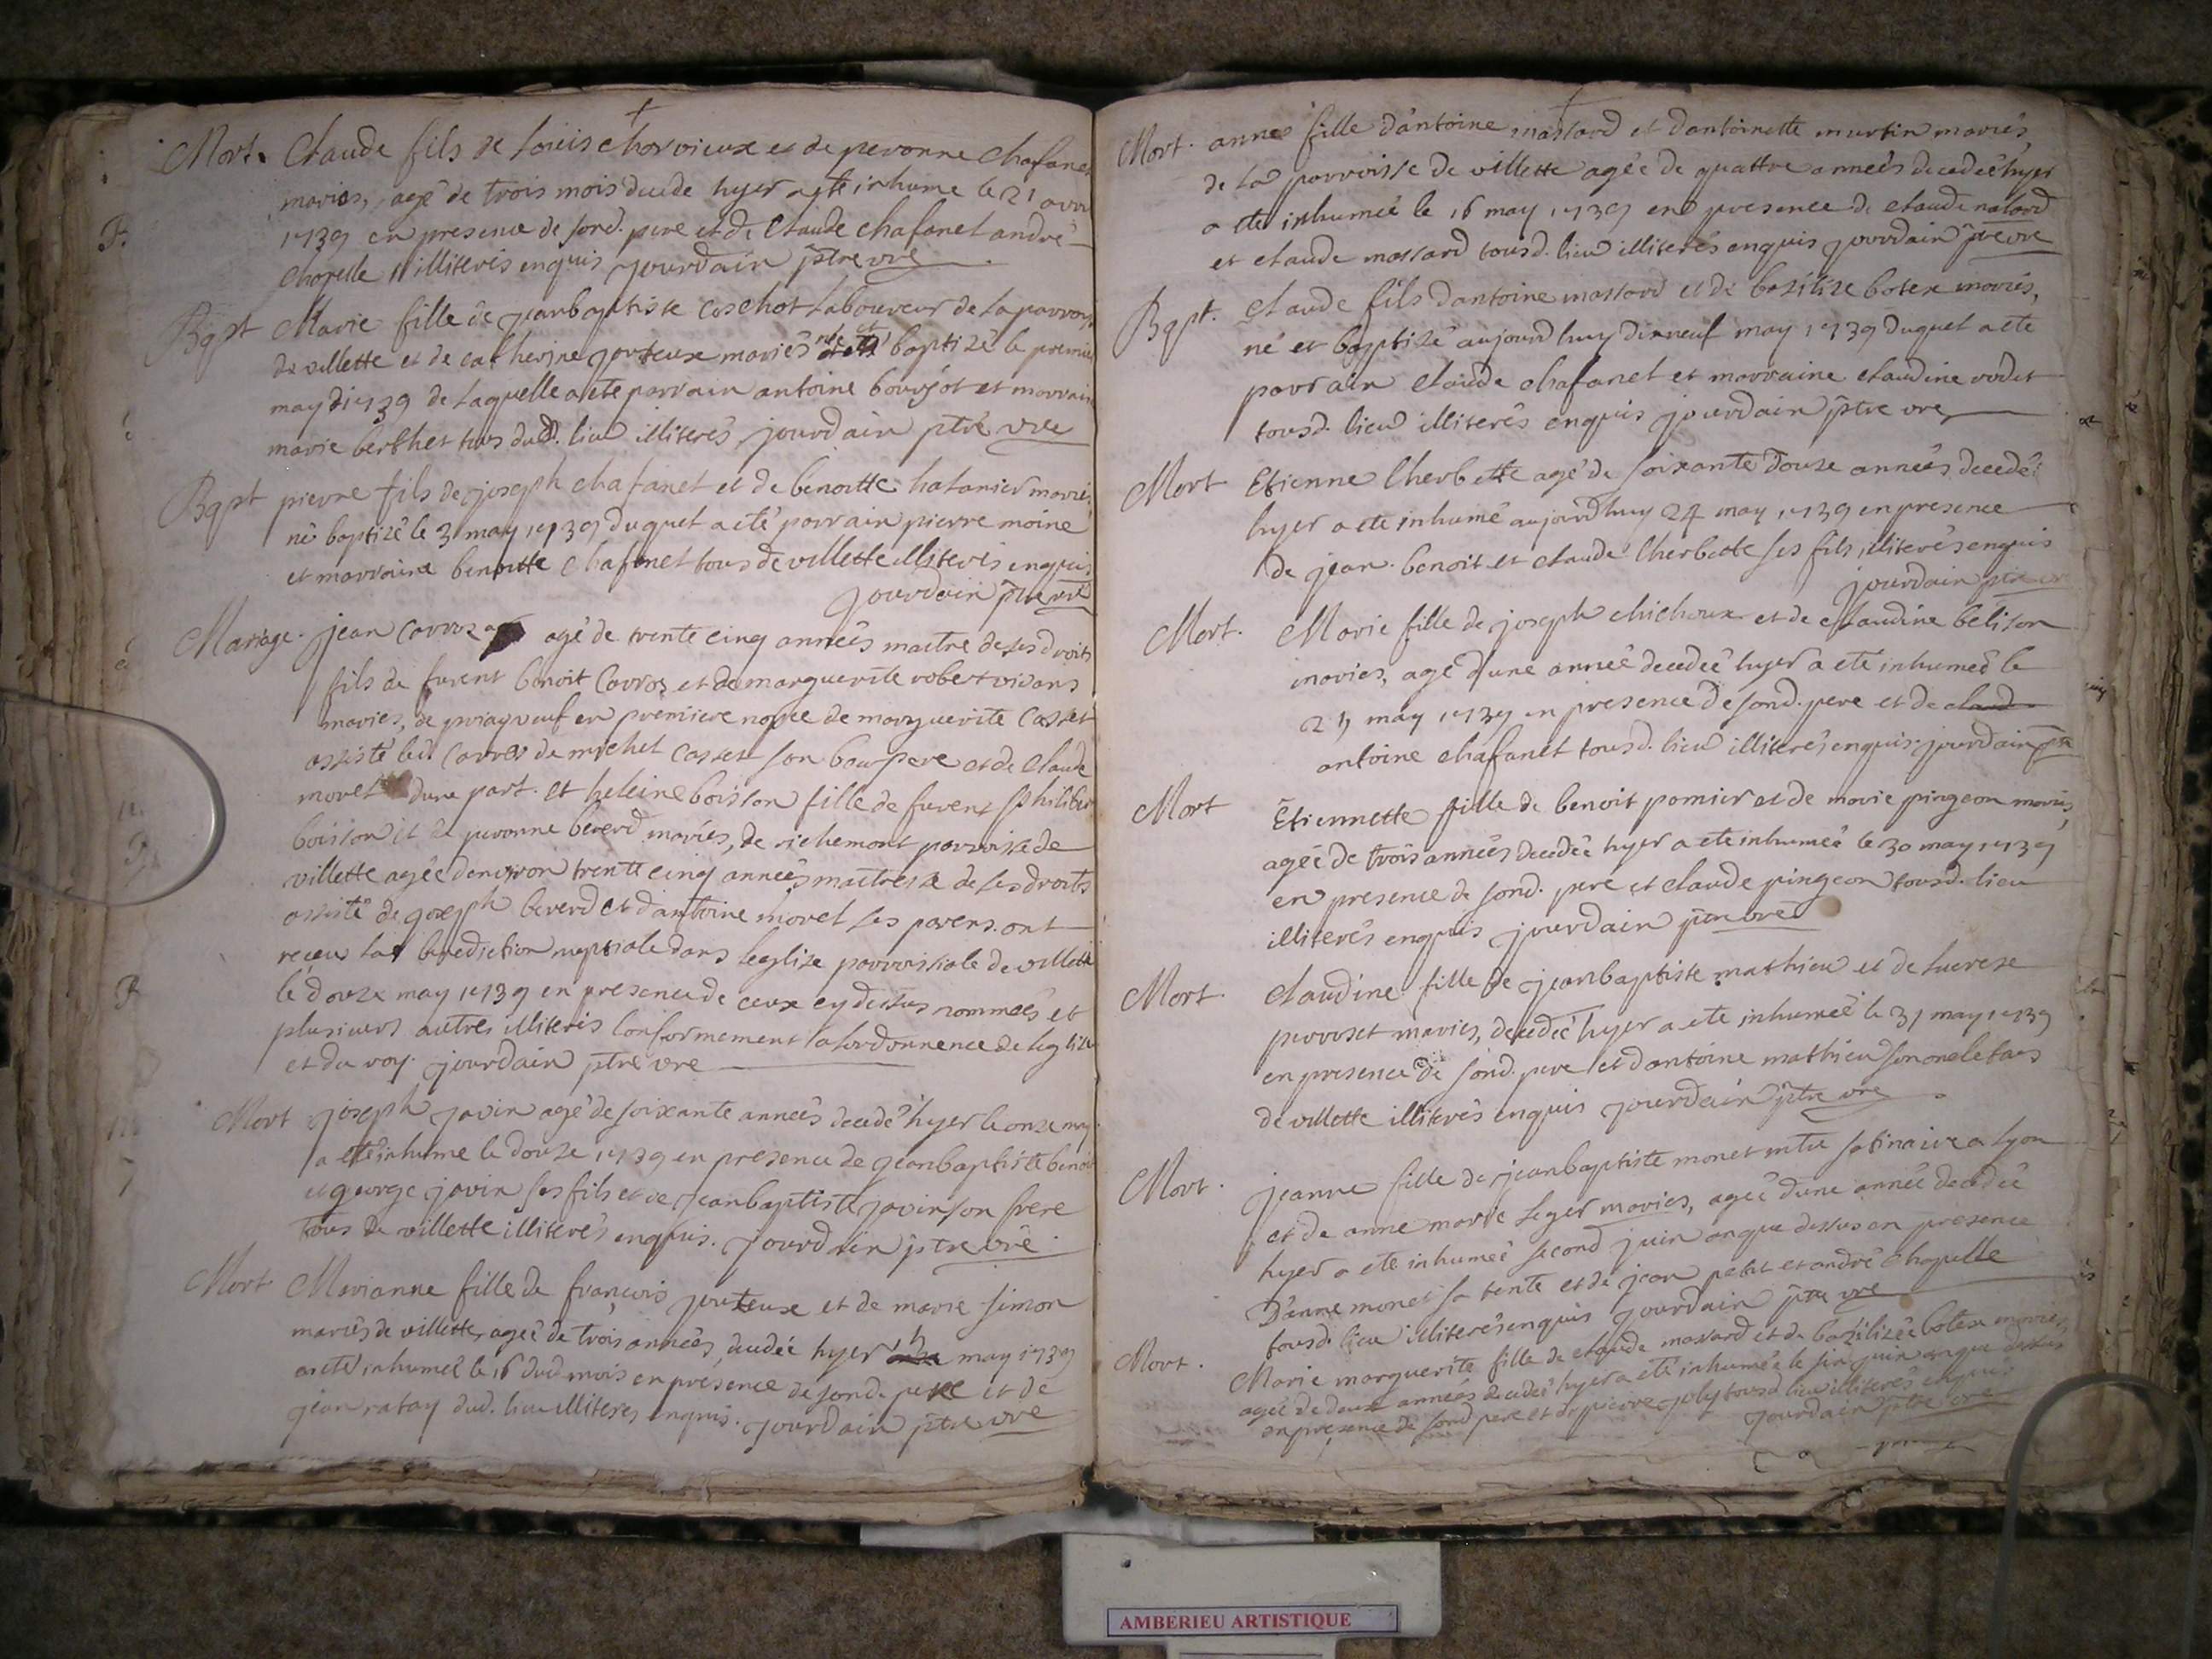 Mort. Claude fils de loüis charvieux et de peronne chafanet
mariés, agé de trois mois decede hyer a ete inhume le 21 avril
1739 en presence de sond. pere et de Claude chafanet andré
chapelle illiterés enquis jourdain ptre vre
Bapt Marie fille de jeanbaptiste coschot laboureur de la parroisse
de villette et de catherine joyteux mariés née et baptizé le premier
may 1739 de laquelle a ete parrain antoine bourjot et marraine
marie berthet tous dud. lieu illiterés jourdain ptre vre
Bapt pierre fils de joseph chafanet et de benoitte hatanier mariés
né baptizé le 3 may 1739 duquel a eté parrain pierre moine
et marraine benoitte chafanet tous de villette illiterés enquis
jourdain ptre vre
Mariage. jean Carroz agé de trente cinq années maitre de ses droits
fils de furent benoit Carroz et de marguerite robert vivans
mariés, de priay veuf en premiere nopce de marguerite Casset
assisté led Carroz de michel casset son beaupere et de Claude
moret dune part. et heleine boisson fille de furent philibert
boisson et de peronne beverd mariés, de richemont parroisse de
villette agée denviron trente cinq années maitresse de ses droits
assisté de joseph beverd et dantoine morel ses parens. ont
reçeu la benediction nuptiale dans leglise parroissiale de villette
le douze may 1739 en presence de ceux cy dessus nommés et
plusieurs autres illiterés Conformement a lordonnence de leglize
et du roy. jourdain ptre vre
Mort joseph javin agé de soixante années decedé hyer le onze may
a ete inhume le douze 1739 en presence de jeanbaptiste benoit
et george javin ses fils et de jeanbaptiste javin son frere
tous de villette illiterés enquis. jourdain ptre vre.
Mort Marianne fille de françois joyteux et de marie simon
mariés de villette, ageé de trois années, decedée hyer 15 may 1739
a ete inhumeé le 16 dud mois en presence de sond. pere et de
jean ratay dud. lieu illiteres enquis. jourdain ptre vre
Mort. anne fille dantoine massard et dantoinette murtin mariés,
de la parroisse de villette agée de quattre annees decedeé hyer
a ete inhumeé le 16 may 1739 en presence de claude
et claude massard tousd. lieu illiterés enquis jourdain ptre vre
Bapt. claude fils dantoine massard et de bazilize botex mariés,
né et baptizé aujourdhuy dixneuf may 1739 duquel a ete
parrain claude chafanet et marraine claudine vodet
tousd. lieu illiterés enquis jourdain ptre vre
Mort Etienne lherbette agé de soixante douze années decedé
hyer a ete inhumé aujourdhuy 24 may 1739 en presence
de jean. benoit et claude lherbette ses fils, illiterés enquis
jourdain ptre vre
Mort. Marie fille de joseph chichoux et de claudine belison
mariés, agé d'une anneé decedeé hyer a ete inhumeé le
29 may 1739 en presence de sond. pere et de claud
antoine chafanet tousd. lieu illiterés enquis. jourdain ptre
Mort Etiennette fille de benoit pomier et de marie pingeon mariés,
agée de trois années decedée hyer a ete inhumeé le 30 may 1739
en presence de sond. pere et claude pingeon tousd. lieu
illiterés enquis jourdain ptre vre
Mort. claudine fille de jeanbaptiste mathieu et de lucrese
perroset mariés, decedeé hyer a ete inhumeé le 31 may 1739
en presence de sond. pere et dantoine mathieu son oncle tous
de villette illiterés enquis jourdain ptre vre
Mort. jeanne fille de jeanbaptiste monet mtre satinaire a lyon
et de anne marie leger mariés, ageé d'une anneé decedée
hyer a ete inhumeé second juin anque dessus en presence
Danne monet sa tente et de jean petit et andré chapelle
tousd. lieu illiterés enquis jourdain ptre vre
Mort. Marie marguerite fille de claude massard et de bazilizée botex mariés,
ageé de deux anneés decedeé hyer a ete inhumeé le six juin anque dessus
en presence de sond pere et de pierre joly tousd. lieu illiterés enquis
jourdain ptre vre
AMBERIEU ARTISTIQUE